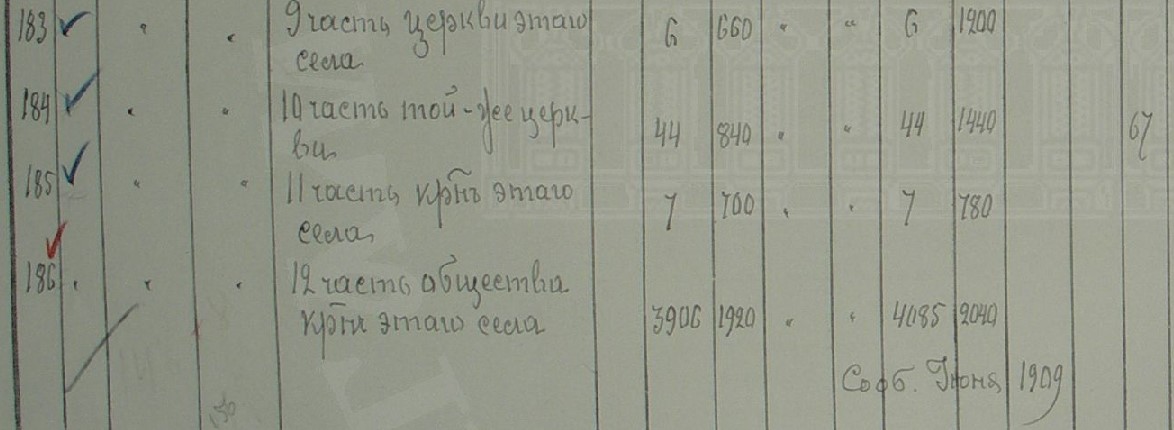 183 " " 9 часть церкви этаго 6 660 " " 6 1200
села
184 " " 10 часть той-же церк-
ви 44 840 " " 44 1440 67
185 " " 11 часть крнъ этаго
села 7 700 " " 7 780
186 " " " 12 часть общества
крнъ этаго села 3906 1920 " " 4085 2040
1909